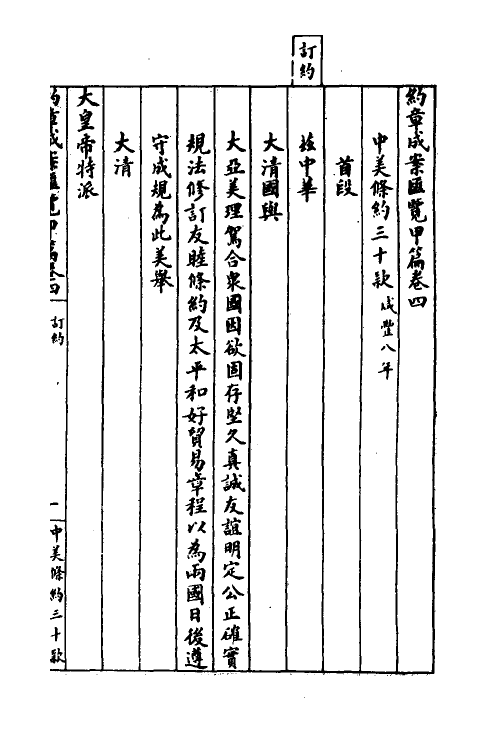 訂約
約章成案匯覽甲篇卷四
中美條約三十款 咸豐八年
首段
茲中華
大清國與
大亞美理駕合衆國因欲固存堅久真誠友誼明定公正確實
規法修訂友睦條約及太平和好貿易章程以為兩國日後遵
守成規為此美舉
大清
大皇帝特派
約章成案匯覽甲篇卷四 訂約 一 中美條約三十款